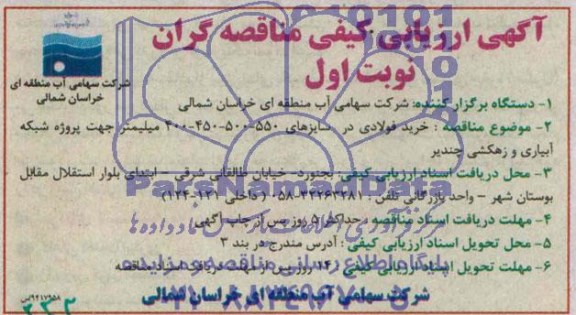 آگهی ارزیابی کیفی مناقصه گران
نوبت اول
شرکت سهامی آب منطقه ای
خراسان شمالی
۱- دستگاه برگزار کننده: شرکت سهامی آب منطقه ای خراسان شمالی
۲- موضوع مناقصه : خرید فولادی در سایزهای ۵۵۰-۵۰۰-۴۵۰-۴۰۰ میلیمتر جهت پروژه شبکه
آبیاری و زهکشی چندیر
۳- محل دریافت اسناد ارزیابی کیفی: بجنورد- خیابان طالقانی شرقی - ابتدای بلوار استقلال مقابل
بوستان شهر - واحد بازرگانی تلفن : ۳۲۲۶۳۲۸۱-۰۵۸ ( داخلی ۱۳۱ و ۱۲۴)
۴- مهلت دریافت اسناد مناقصه : حداکثر ۵ روز پس از چاپ آگهی
۵- محل تحویل اسناد ارزیابی کیفی : آدرس مندرج در بند ۳
۶- مهلت تحویل اسناد ارزیابی کیفی : ۱۴ روز پس از مهلت دریافت اسناد مناقصه
شرکت سهامی آب منطقه ای خراسان شمالی
ParsNamadData
پایگاه اطلاع رسانی مناقصه و مزایده